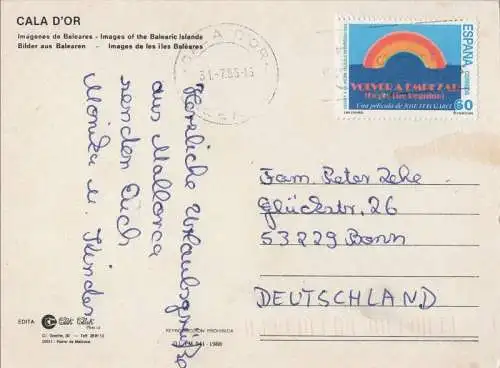 CALA D'OR
Imágenes de Baleares - Images of the Balearic Islands
Bilder aus Balearen - Images de les îles Baléares
CALA D'OR
31.-7.95-15
ESPAÑA
CORREOS
VOLVER A EMPEZAR
(Begin the Beguine)
Una película de JOSE LUIS GARCI
60
Herzliche Urlaubsgrüße
aus Mallorca
senden Euch
Monika u. Kinder
Fam. Peter Zehe
Glückstr. 26
53229 Bonn
DEUTSCHLAND
EDITA
Palma de Mallorca
REPRODUCCION PROHIBIDA
1988